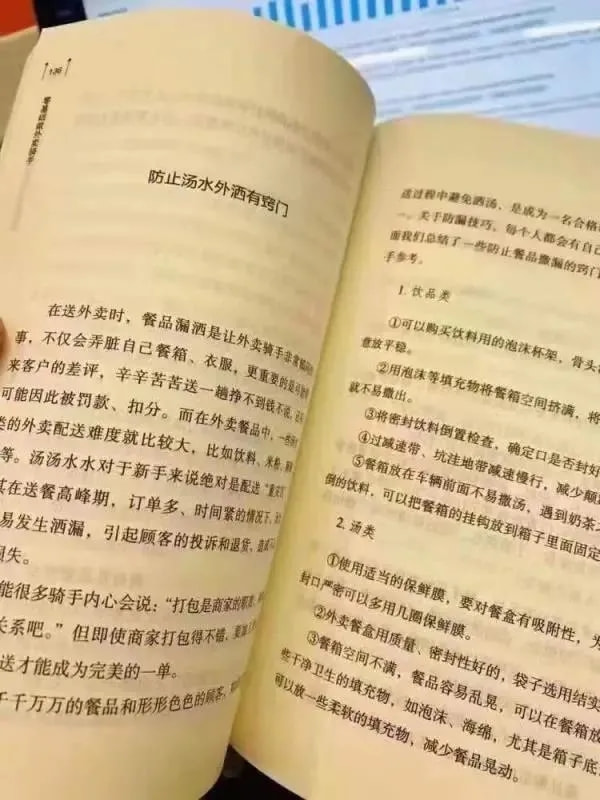 136
零基础做外卖骑手
防止汤水外洒有窍门
在送外卖时,餐品漏洒是让外卖骑手非常
事,不仅会弄脏自己餐箱、衣服,更重要的是
来客户的差评,辛辛苦苦送一趟挣不到钱不说,
可能因此被罚款、扣分。而在外卖餐品中,一些
类的外卖配送难度就比较大,比如饮料、米粉、
等。汤汤水水对于新手来说绝对是配送“重灾区”
其在送餐高峰期,订单多、时间紧的情况下,
易发生洒漏,引起顾客的投诉和退货,造成
损失。
能很多骑手内心会说:“打包是商家的
关系吧。”但即使商家打包得不错,
送才能成为完美的一单。
千千万万的餐品和形形色色的顾客,
送过程中避免洒汤、是成为一名合格
一。关于防漏技巧,每个人都会有自己
面我们总结了一些防止餐品撒漏的窍门
手参考。
1. 饮品类
①可以购买饮料用的泡沫杯架,骨头
意放平稳。
②用泡沫等填充物将餐箱空间挤满,将
就不易撒出。
③将密封饮料倒置检查,确定口是否封好
④过减速带、坑洼地带减速慢行,减少颠
⑤餐箱放在车辆前面不易撒汤,遇到奶茶
倒的饮料,可以把餐箱的挂钩放到箱子里面固定
2. 汤类
①使用适当的保鲜膜,要对餐盒有吸附性,为
封口严密可以多用几圈保鲜膜。
②外卖餐盒用质量、密封性好的,袋子选用结实
③餐箱空间不满,餐品容易乱晃,可以在餐箱放
些干净卫生的填充物,如泡沫、海绵,尤其是箱子底
可以放一些柔软的填充物,减少餐品晃动。